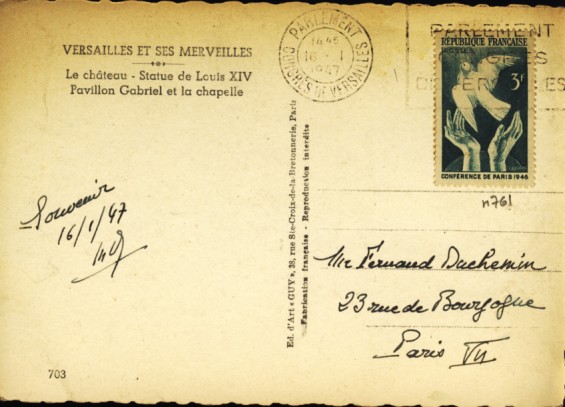 VERSAILLES ET SES MERVEILLES
Le château - Statue de Louis XIV
Pavillon Gabriel et la chapelle
PARLEMENT
14 45
16 - 1
1947
CONGRÈS DE VERSAILLES
PARLEMENT
CONGRÈS
DE VERSAILLES
RÉPUBLIQUE FRANÇAISE
3F
CONFÉRENCE DE PARIS 1946
n761
Souvenir
16/1/47
Ed. d'Art « GUY », 36, rue Ste-Croix-de-la-Bretonnerie, Paris
Fabrication française - Reproduction interdite
Mr Fernand Duchemin
23 rue de Bourgogne
Paris VII
703